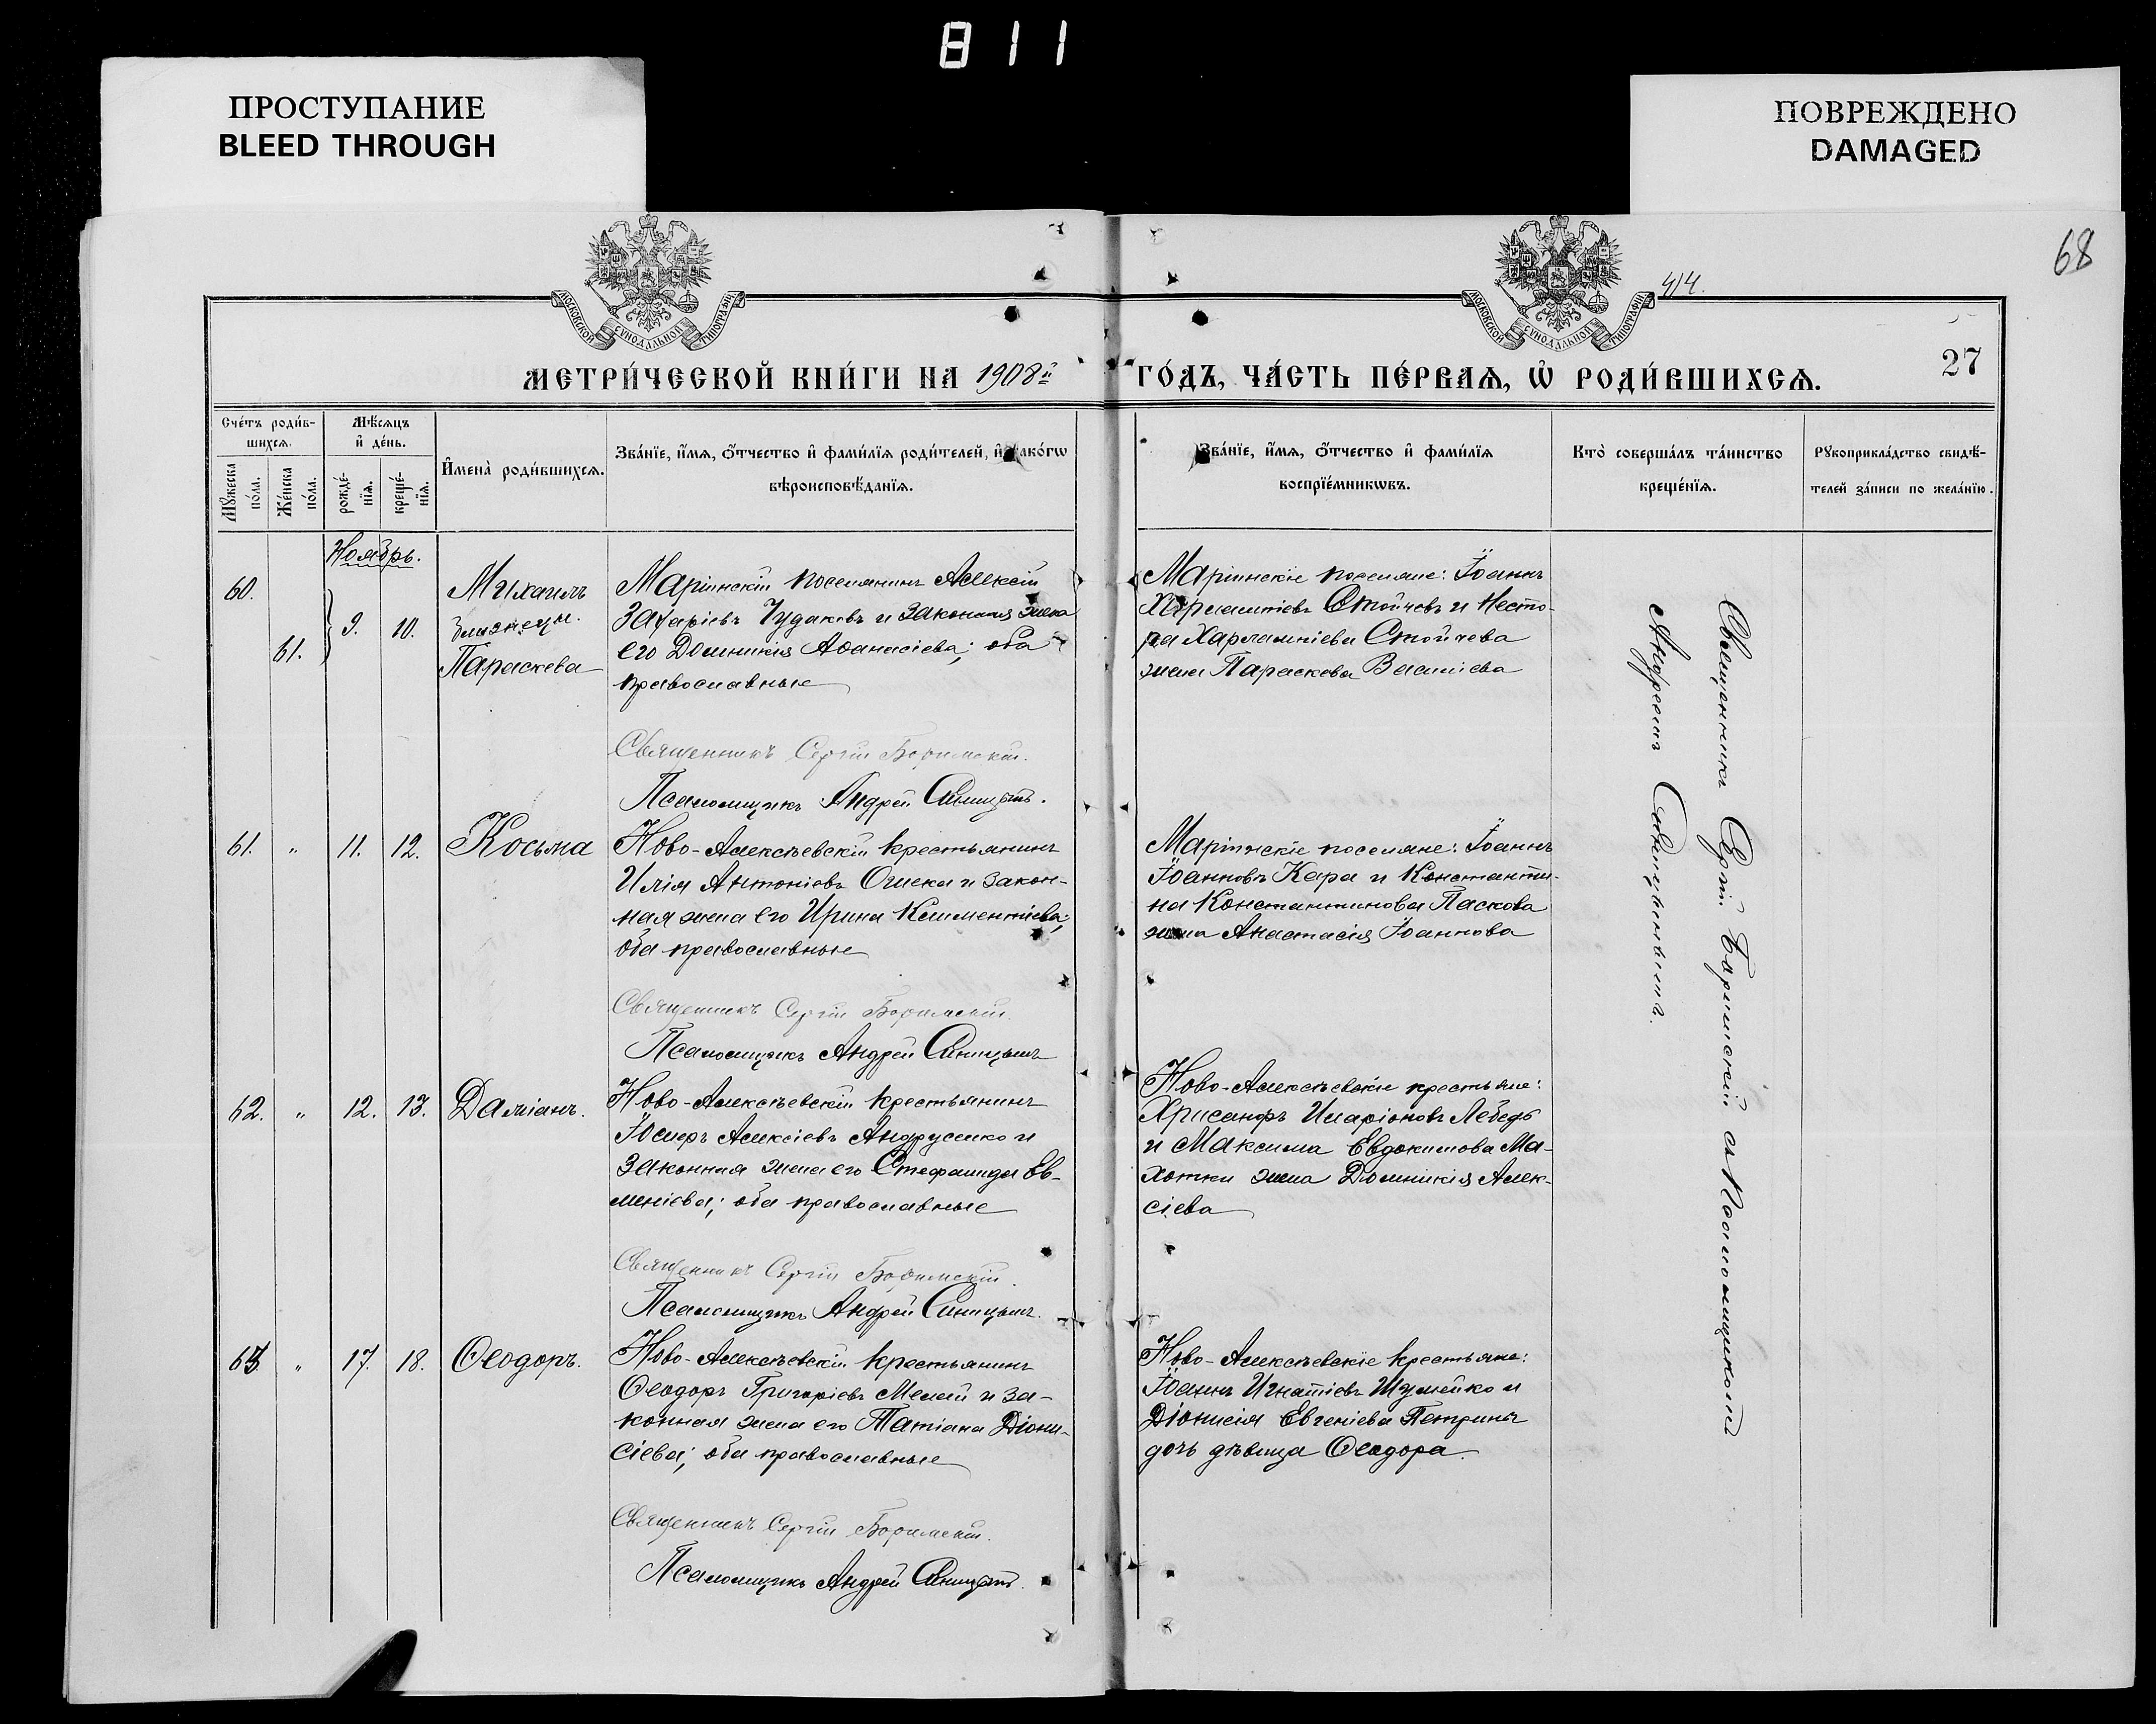 811
ПРОСТУПАНИЕ
BLEED THROUGH
ПОВРЕЖДЕНО
DAMAGED
68
414.
МОСКОВСКОЙ СѴНОДАЛЬНОЙ ТИПОГРАФІИ
МОСКОВСКОЙ СѴНОДАЛЬНОЙ ТИПОГРАФІИ
27
МЕТРИ́ЧЕСКОЙ КНИ́ГИ НА 1908й ГО́ДЪ, ЧА́СТЬ ПЕ́РВАѦ, Ѡ҆ РОДИ́ВШИХСѦ.
Сче́тъ роди́в-
шихсѧ.
Мꙋ́жеска
по́ла.
Же́нска
по́ла.
Мѣ́сѧцъ
и҆ де́нь.
рожде́-
нїѧ.
креще́-
нїѧ.
И҆мена̀ роди́вшихсѧ.
Зва́нїе, и҆́мѧ, ѻ҆́тчество и҆ фами́лїѧ роди́телей, и҆ како́гѡ
вѣроисповѣ́данїѧ.
Зва́нїе, и҆́мѧ, ѻ҆́тчество и҆ фами́лїѧ
воспрїе́мникѡвъ.
Кто̀ соверша́лъ та́инство
креще́нїѧ.
Рꙋкоприкла́дство свидѣ́-
телей за́писи по жела́нїю.
Ноябрь.
60.
61.
9.
10.
Михаилъ
близнецы.
Параскева
Маріинскій поселянинъ Алексій
Захаріевъ Чудаковъ и законная жена
его Домникія Аѳанасіева; оба
православные
Священникъ Сергій Боримскій.
Псаломщикъ Андрей Синицынъ.
Маріинскіе поселяне: Іоаннъ
Харлампіевъ Стойчевъ и Несто-
ра Харлампіева Стойчева
жена Параскева Василіева
61.
"
11.
12.
Косьма
Ново-Алексѣевскій крестьянинъ
Илія Антоніевъ и закон-
ная жена его Ирина Климентіева;
оба православные
Священникъ Сергій Боримскій.
Псаломщикъ Андрей Синицынъ
Маріинскіе поселяне: Іоаннъ
Іоанновъ Кара и Константи-
на Константинова Паскова
жена Анастасія Іоаннова
62.
"
12.
13.
Даміанъ.
Ново-Алексѣевскій крестьянинъ
Іосифъ Алексіевъ Андрусенко и
законная жена его Стефанида Ев-
меніева; оба православные
Священникъ Сергій Боримскій.
Псаломщикъ Андрей Синицынъ.
Ново-Алексѣевскіе крестьяне:
Хрисанфъ Иларіоновъ Лебедь
и Максима Евдокимова Ма-
хотки жена Домникія Алек-
сіева
63
"
17.
18.
Ѳеодоръ.
Ново-Алексѣевскій крестьянинъ
Ѳеодоръ Григоріевъ и за-
конная жена его Татіана Діони-
сіева; оба православные
Священникъ Сергій Боримскій.
Псаломщикъ Андрей Синицынъ.
Ново-Алексѣевскіе крестьяне:
Іоаннъ Игнатіевъ Шумейко и
Діонисія Евгеніева Петрина
дочь дѣвица Ѳеодора.
Священникъ Сергій Боримскій съ Псаломщикомъ
Андреемъ Синицынымъ.